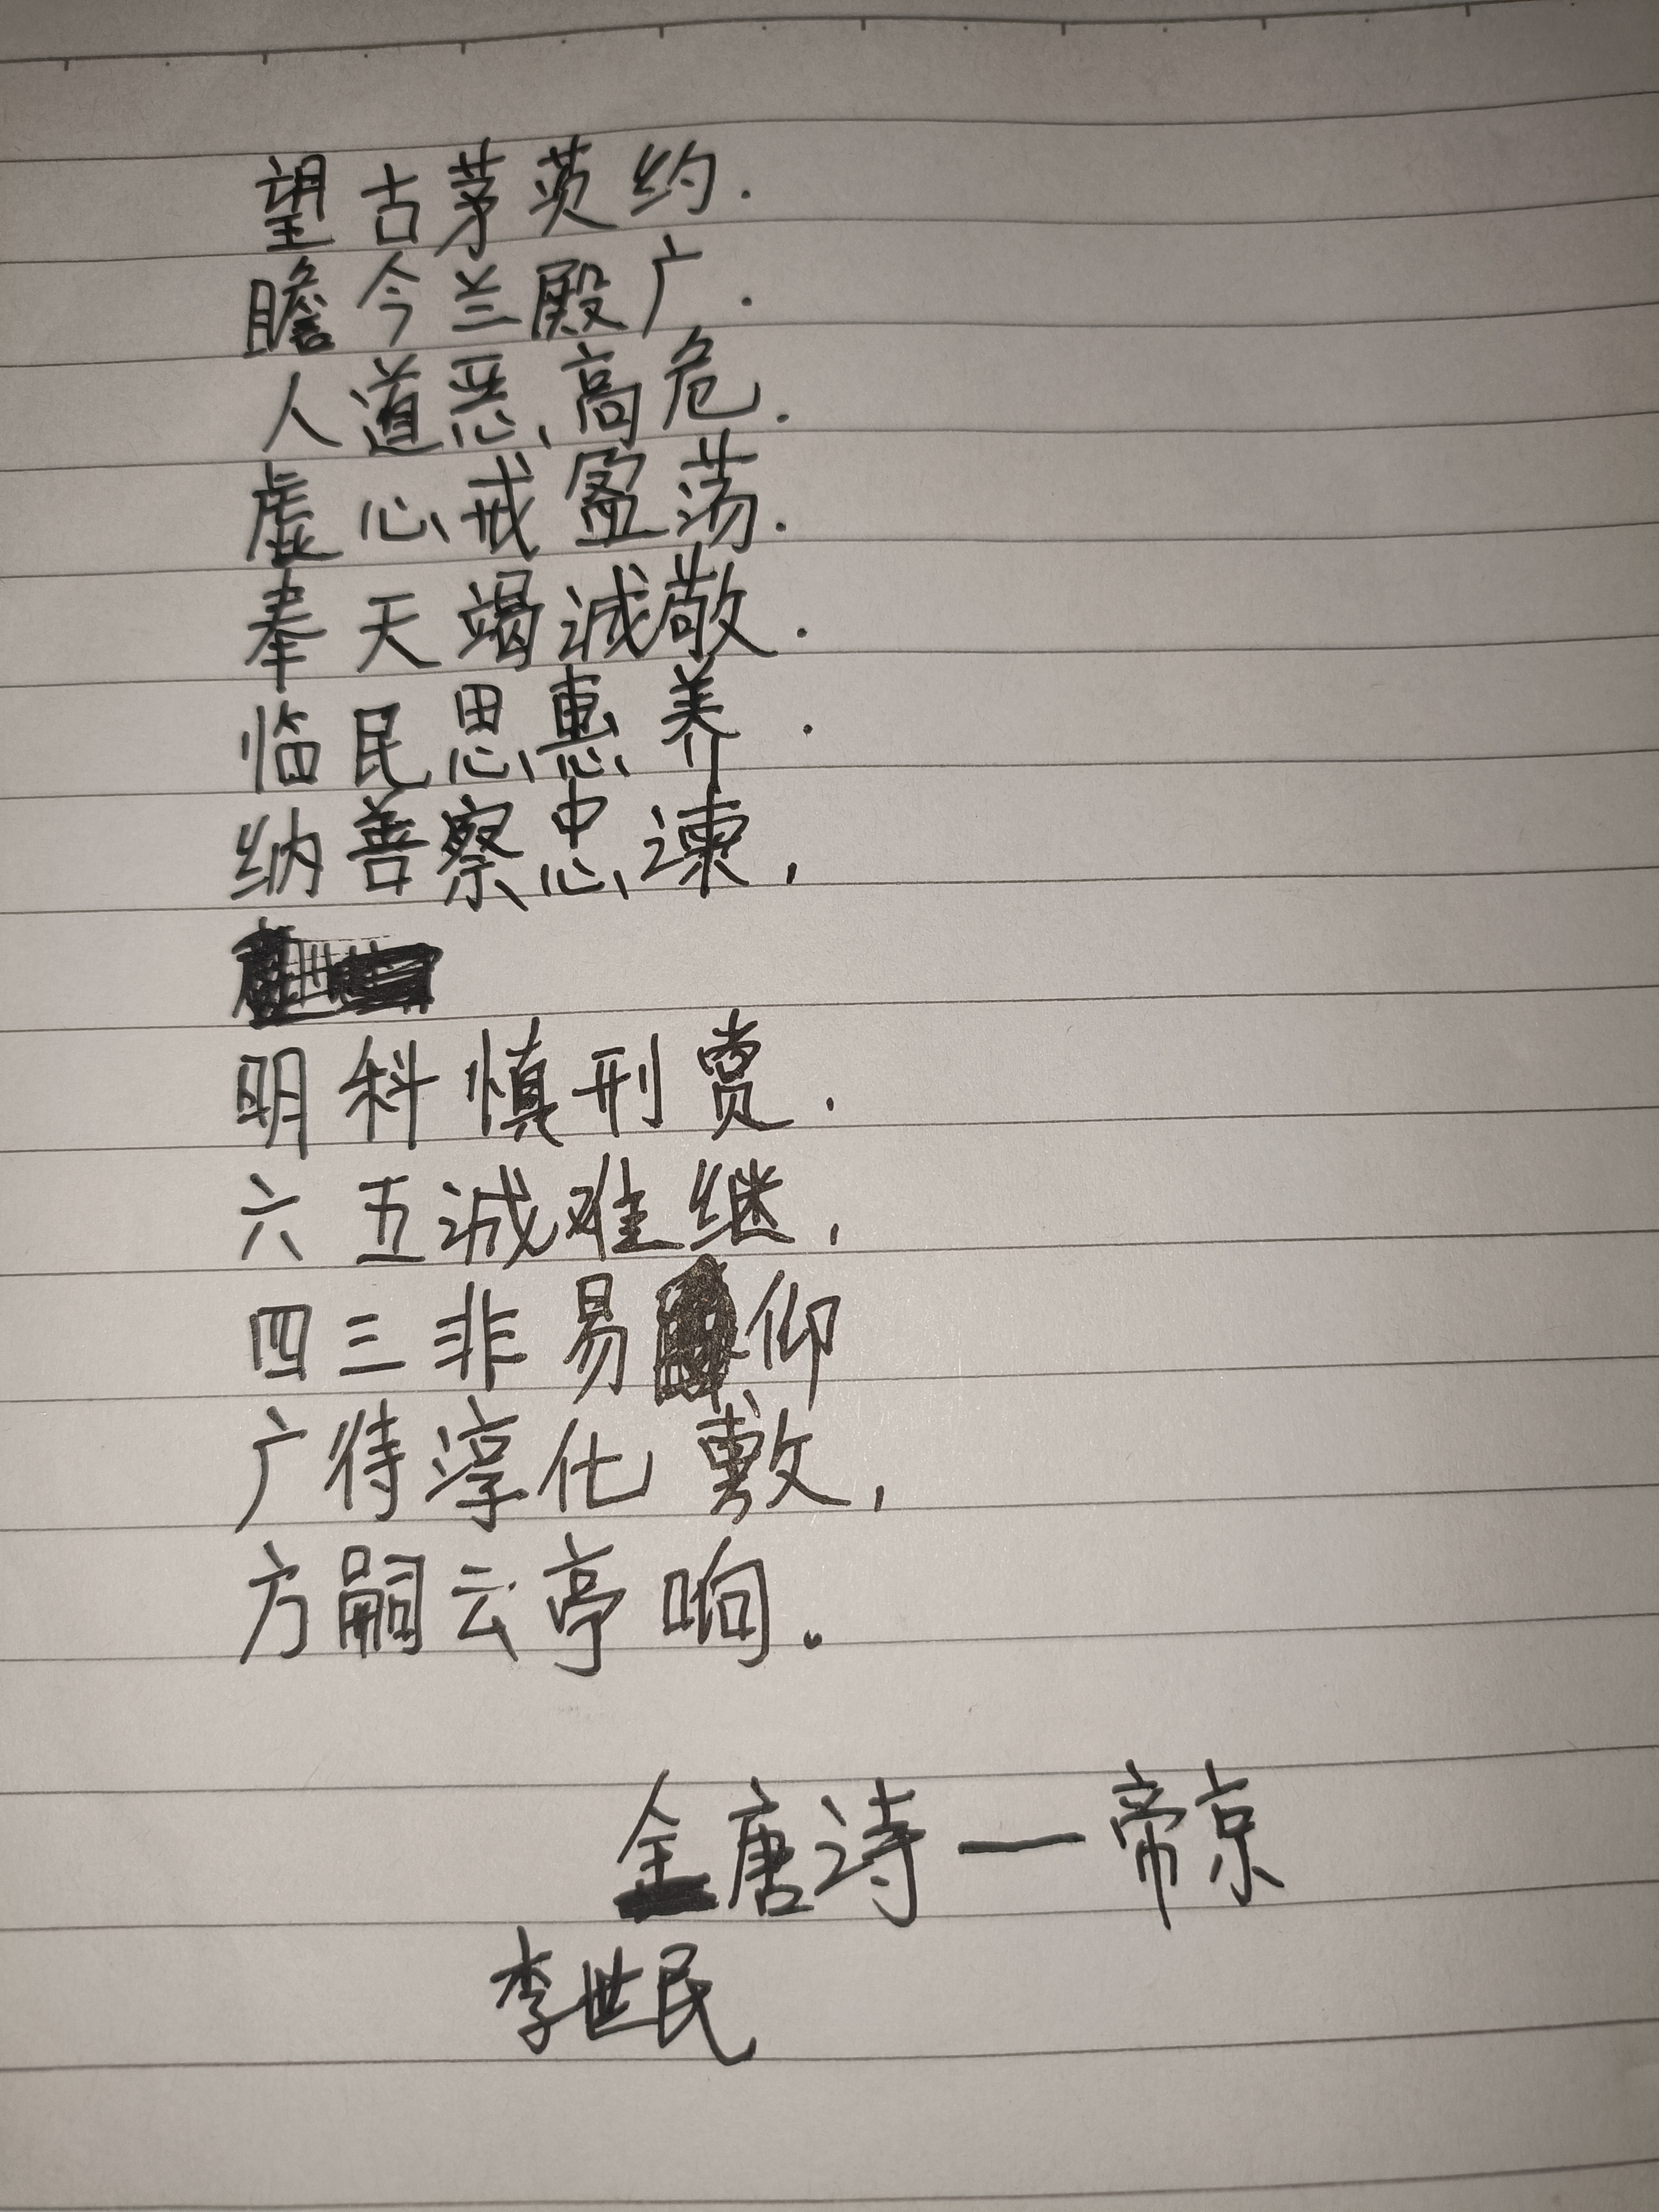 望古茅茨约.
瞻今兰殿广.
人道恶高危.
虚心戒盈荡.
奉天竭诚敬.
临民思惠养.
纳善察忠谏,
明科慎刑赏.
六五诚难继,
四三非易仰
广待淳化敷,
方嗣云亭响。
全唐诗一帝京
李世民